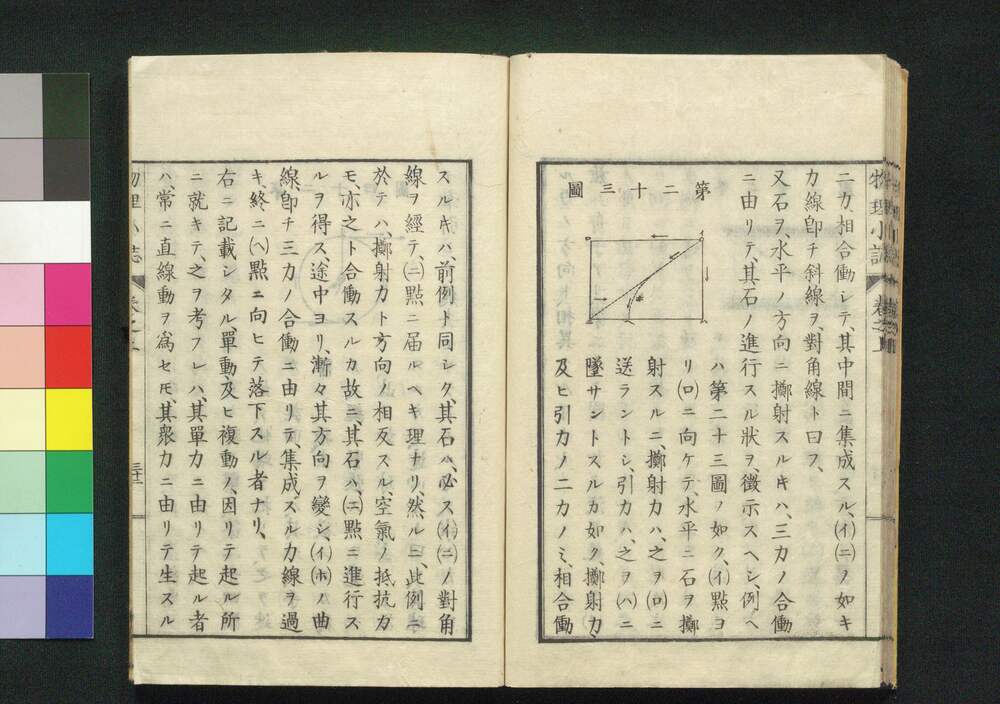 二力相合働シテ、其中間ニ集成スル、(イ)(ニ)ノ如キ
力線卽チ斜線ヲ、對角線ト曰フ、
又石ヲ、水平ノ方向ニ擲射スルキハ、三力ノ合働
ニ由リテ、其石ノ進行スル狀ヲ、徵示スヘシ、例ヘ
ハ第二十三圖ノ如ク、(イ)點ヨ
リ(ロ)ニ向ケテ、水平ニ石ヲ擲
射スルニ、擲射力ハ、之ヲ(ロ)ニ
送ラントシ、引力ハ、之ヲ(ハ)ニ
墜サントスルカ如ク、擲射力、
及ヒ引力ノ二力ノミ、相合働
第二十三圖
スルキハ、前例ト同シク、其石ハ、必ス(イ)(ニ)ノ對角
線ヲ經テ、(ニ)點ニ届ルヘキ理ナリ、然ルニ、此例ニ
於テハ、擲射力ト方向ノ相反スル、空氣ノ抵抗力
モ、亦之ト合働スルカ故ニ、其石ハ、(ニ)點ニ進行ス
ルヲ得ス、途中ヨリ、漸々其方向ヲ變シ、(イ)(ホ)ノ曲
線、卽チ三力ノ合働ニ由リテ、集成スル力線ヲ過
キ、終ニ(ヘ)點ニ向ヒテ落下スル者ナリ、
右ニ記載シタル、單動及ヒ複動ノ、因リテ起ル所
ニ就キテ、之ヲ考フレハ、其單力ニ由リテ起ル者
ハ、常ニ直線動ヲ爲セモ、其衆力ニ由リテ生スル
物理小誌
卷之